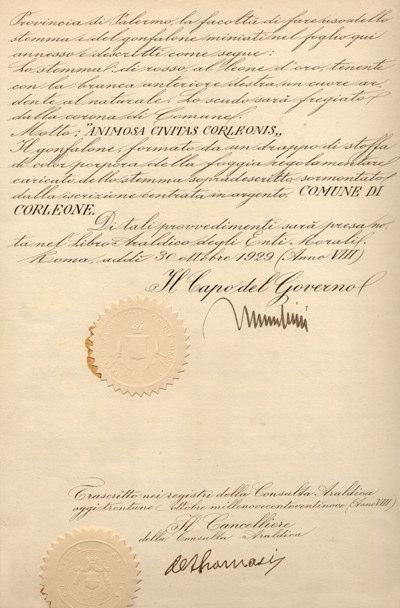 Provincia di Palermo, la facoltà di fare uso dello
stemma e del gonfalone miniati nel foglio qui
annesso e descritti come segue:
Lo stemma: di rosso, al leone d'oro, tenente
con la branca anteriore destra un cuore ar-
dente al naturale. Lo scudo sarà fregiato
dalla corona di Comune.
Motto: "ANIMOSA CIVITAS CORLEONIS„
Il gonfalone, formato da un drappo di stoffa
di color porpora della foggia regolamentare
caricato dello stemma sopradescritto sormontato
dalla iscrizione centrata in argento. COMUNE DI
CORLEONE.
Di tali provvedimenti sarà presa no-
ta nel Libro Araldico degli Enti Morali.
Roma, addì 30 ottobre 1929 (Anno VIII)
Il Capo del Governo
Mussolini
Trascritto nei registri della Consulta Araldica
oggi trentuno ottobre millenovecentoventinove (Anno VIII)
Il Cancelliere
della Consulta Araldica